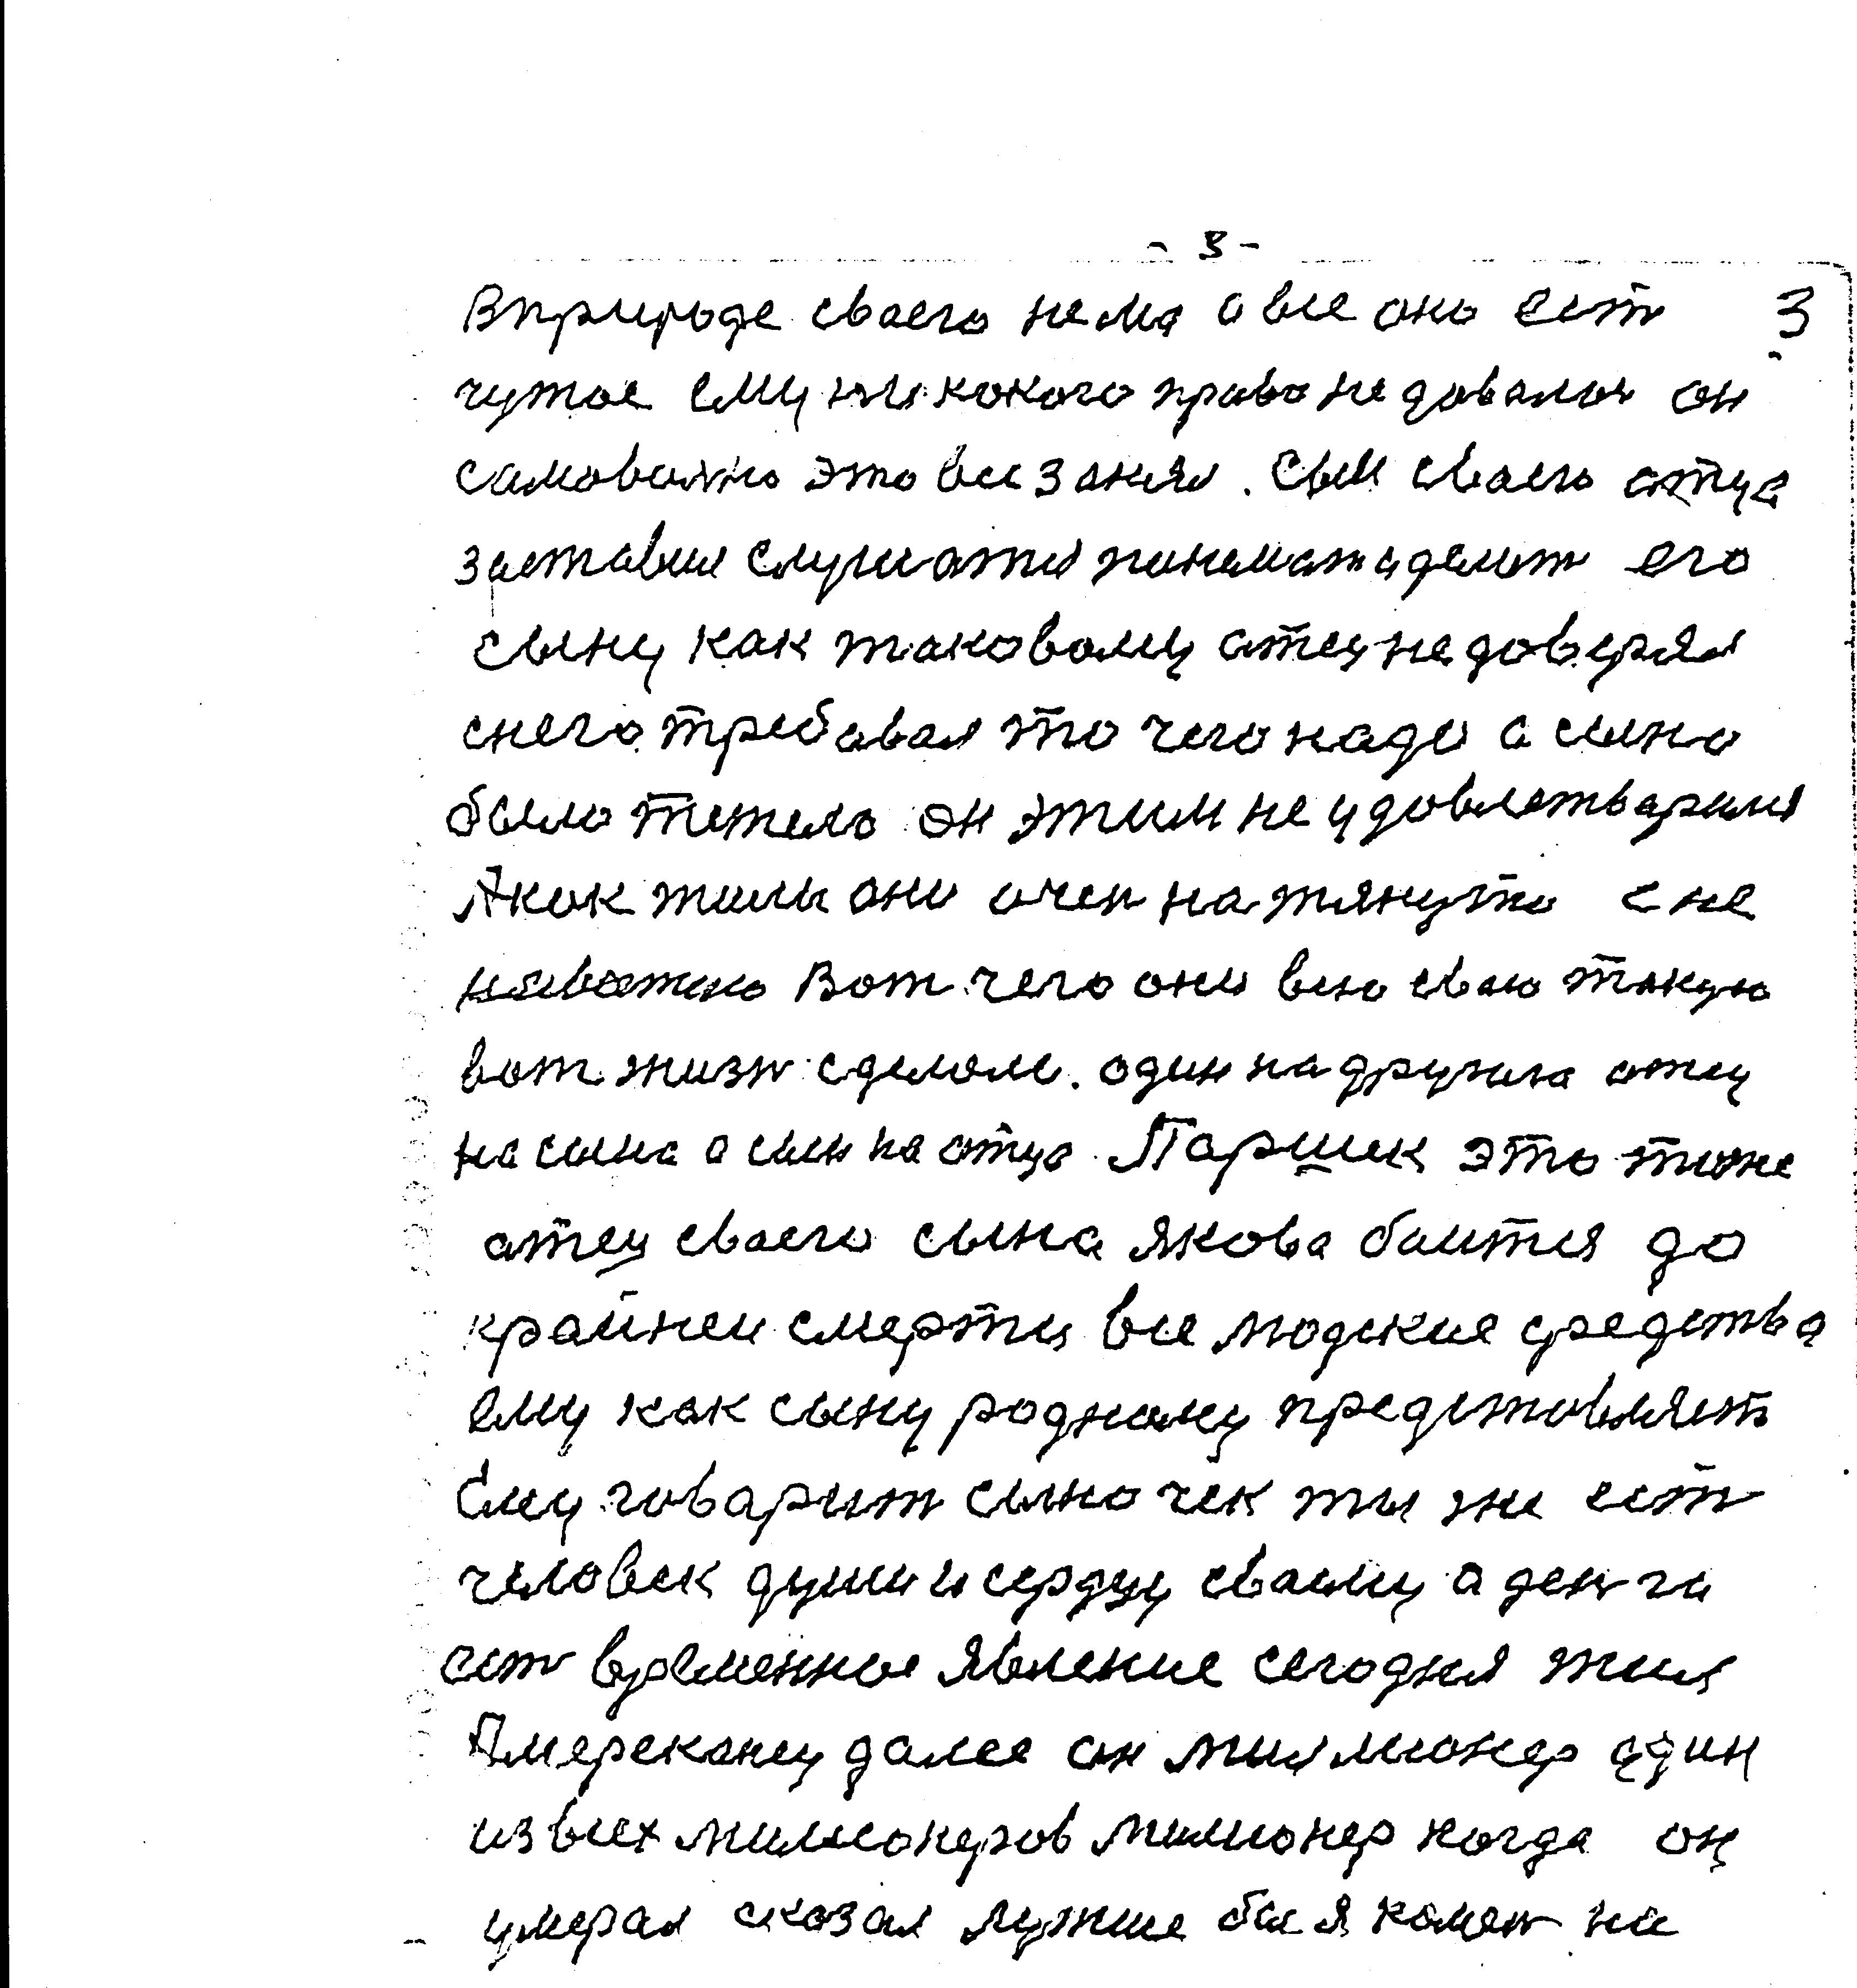 - 3 -
Вприроде сваего нема а все оно ест 3
чутое ему никокого право не довалос он
самовольно это все занял. Сын сваего атца
заставил слушатся понемат и делот его
сыну как таковому атец не доверял
снего требавал то чего надо а сына
было тежело он этим не удовлетварился
А как жили они очен натянуто с не
навистью Вот чего они всю сваю такую
вот жизн сделоли. один на другога отец
на сына а сын на отца Паршек это тоже
атец сваего сына якова баится до
крайнеи смерти все людские средства
ему как сыну роднаму предстовляет
Ему говарит сыночек ты же ест
человек души и сердцу сваему а денги
ест временное явление сегодня жил
Американец далее он миллионер один
из всех милионеров милионер когда он
умерал сказал лутше бы я камен на